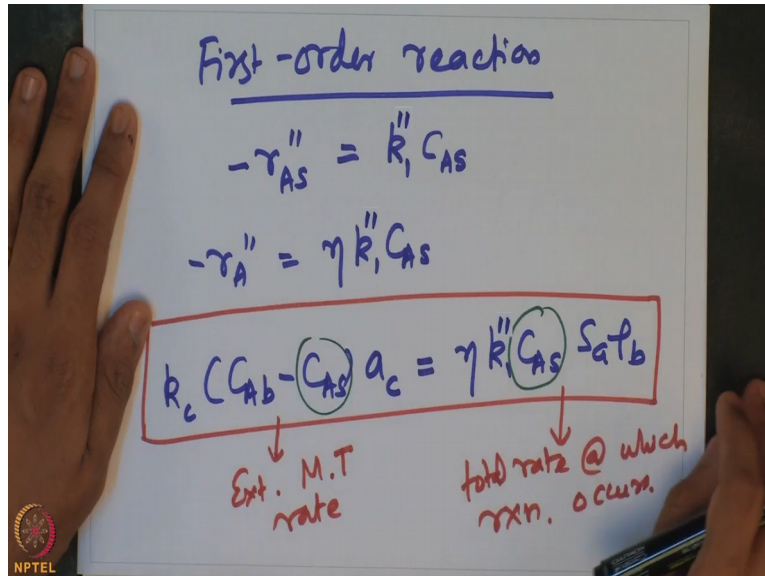 First-order reaction
-r"AS = k"1 CAS
-rA" = η k"1 CAS
kc (CAb - CAS) ac = η k"1 CAS Sa ρb
Ext. M.T
rate
total rate @ which
rxn. occurs.
NPTEL